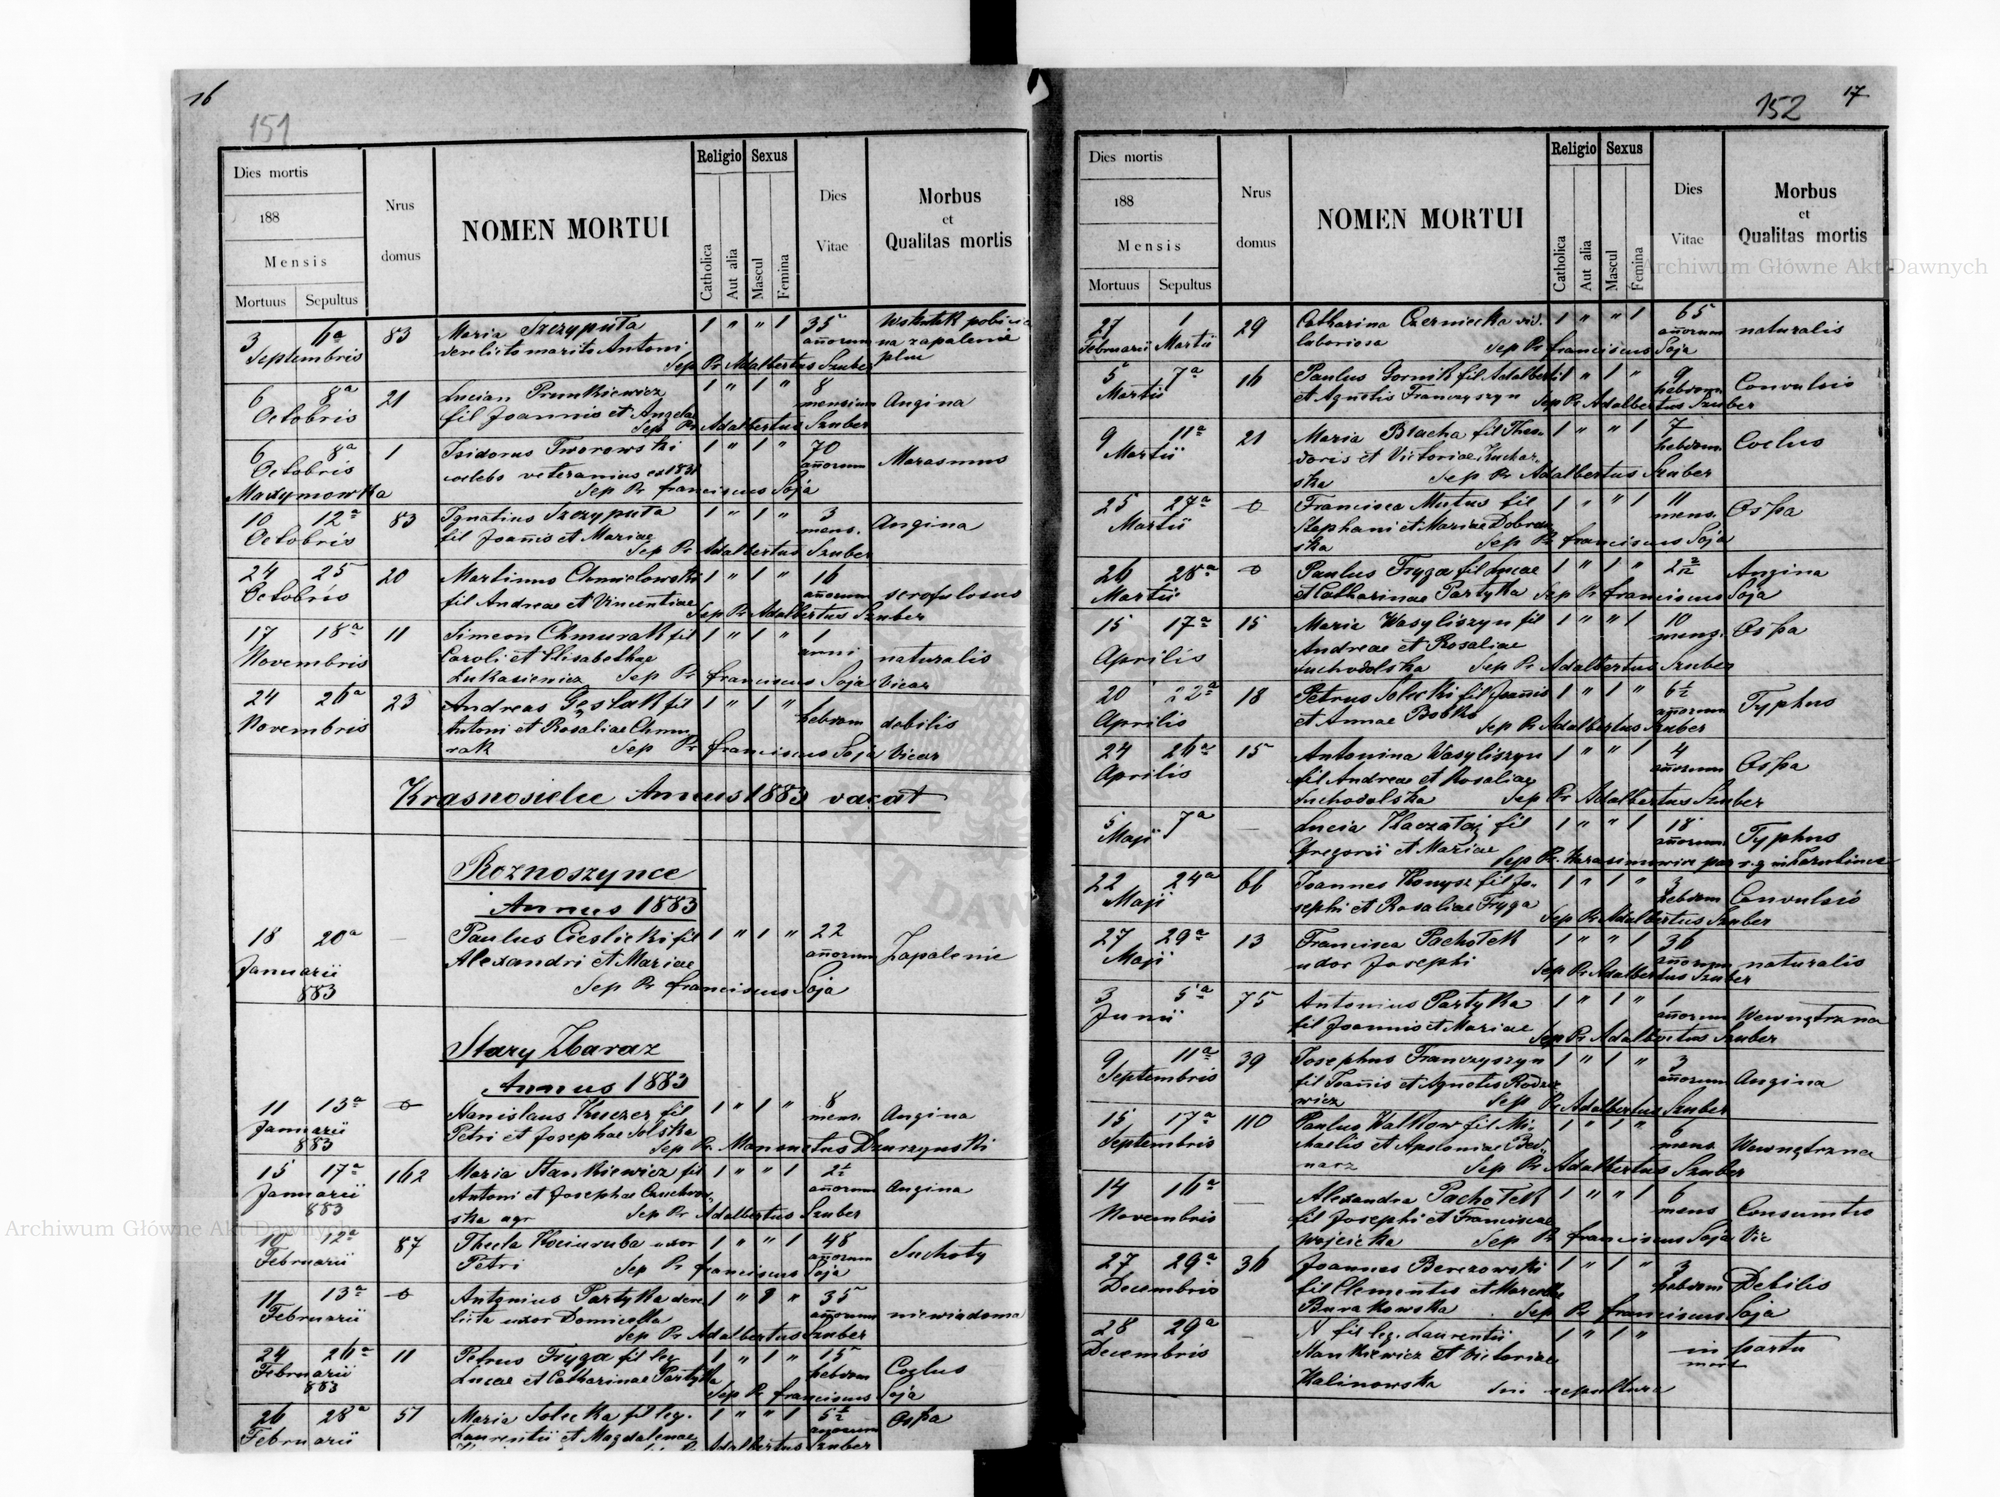 16
151
Dies mortis
188
Mensis
Mortuus Sepultus
Nrus domus
NOMEN MORTUI
Religio Sexus
Catholica Aut alia Mascul Femina
Dies Vitae
Morbus et Qualitas mortis
3 6a 83 Maria Szczyputa 1 " " 1 35
Septembris derelicta marito Antoni añorum na zapalenie
Sep Pr Adalbertus Szuber
6 8a 21 Lucian Prunkiewicz 1 " 1 " 8
Octobris fil Joannis et Angela mensium Angina
Sep Pr Adalbertus Szuber
6 8a 1 Isidorus Tworowski 1 " 1 " 70
Octobris celebs veteranius ex 1831 añorum Marasmus
Maxymowka Sep Pr franciscus Soja
10 12a 83 Ignatius Szczyputa 1 " 1 " 3
Octobris fil Joañis et Mariae mens. Angina
Sep Pr Adalbertus Szuber
24 25 20 Martinus Chmielowski 1 " 1 " 16
Octobris fil Andreae et Vincentiae añorum scrofulosus
Sep Pr Adalbertus Szuber
17 18a 11 Simeon Chmurak fil 1 " 1 " 1
Novembris Caroli et Elisabethae anni naturalis
Lukasiewicz Sep Pr franciscus Soja Vicar
24 26a 23 Andreas Geslak fil 1 " 1 "
Novembris Antoni et Rosaliae Chmu hebdom debilis
rak Sep Pr franciscus Soja Vicar
Krasnosielce Annus 1883 vacat
Roznoszynce
Annus 1883
18 20a — Paulus Cieslicki fil 1 " 1 " 22
Januarii Alexandri et Mariae añorum Zapalenie
883 Sep Pr franciscus Soja
Stary Zbaraz
Annus 1883
11 13a Stanislaus Kuczer fil 1 " 1 " 8
Januarii Petri et Josephae Solska mens. Angina
883 Sep Pr. Mansuetus Dzurzynski
15 17a 162 Maria Stankiewicz fil 1 " " 1 2½
Januarii Antoni et Josephae añorum Angina
883 ska agr Sep Pr Adalbertus Szuber
10 12a 87 Thecla Kociuruba uxor 1 " " 1 48
Februarii Petri añorum Suchoty
Sep Pr franciscus Soja
11 13a Antonius Partyka dere 1 " " 35
Februarii licta uxor Domicella añorum niewiadoma
Sep Pr Adalbertus Szuber
24 26a 11 Petrus Fryga fil leg 1 " 1 " 15
Februarii Lucae et Catharinae Partyka hebdom Coclus
883 Sep Pr franciscus Soja
26 28a 51 Maria Solecka fil leg. 1 " " 1 5½
Februarii Laurentii et Magdalenae añorum Ospa
Adalbertus Szuber
152 17
Dies mortis
188
Mensis
Mortuus Sepultus
Nrus domus
NOMEN MORTUI
Religio Sexus
Catholica Aut alia Mascul Femina
Dies Vitae
Morbus et Qualitas mortis
27 1 29 Catharina Czerniecka vid. 1 " " 1 65
Februarii Martii laboriosa añorum naturalis
Sep Pr franciscus Soja
5 7a 16 Paulus Gornik fil Adalberti 1 " 1 " 9
Martii et Agnetis Franczyszyn hebdom Convulsio
Sep Pr Adalbertus Szuber
9 11a 21 Maria Blacha fil Theo- 1 " " 1 7
Martii doris et Victoriae Kuchar- hebdom. Coclus
ska Sep Pr Adalbertus Szuber
25 27a Francisca Mutus fil 1 " " 1 11
Martii Stephani et Mariae mens. Ospa
ska Sep Pr franciscus Soja
26 28a Paulus Fryga fil Lucae 1 " 1 " Angina
Martii et Catharinae Partyka Sep Pr franciscus Soja
15 17a 15 Maria Wasyliszyn fil 1 " " 1 10
Aprilis Andreae et Rosaliae mens. Ospa
Suchodolska Sep Pr Adalbertus Szuber
20 22a 18 Petrus Solecki fil Joañis 1 " 1 " 6½
Aprilis et Annae Bobko añorum Typhus
Sep Pr Adalbertus Szuber
24 26a 15 Antonina Wasyliszyn 1 " " 1 4
Aprilis fil Andreae et Rosaliae añorum Ospa
Suchodolska Sep Pr Adalbertus Szuber
5 7a — Lucia fil 1 " " 1 18
Maji Gregorii et Mariae añorum Typhus
Sep Pr.
22 24a 66 Joannes Konysz fil Jo- 1 " 1 " 3
Maji sephi et Rosaliae Fryga hebdom Convulsio
Sep Pr Adalbertus Szuber
27 29a 13 Francisca Pachołek 1 " " 1 36
Maji uxor Josephi añorum naturalis
Sep Pr Adalbertus Szuber
3 5a 75 Antonius Partyka 1 " 1 " 1
Junii fil Joannis et Mariae añorum Wewnętrzna
Sep Pr Adalbertus Szuber
9 11a 39 Josephus Franczyszyn 1 " 1 " 3
Septembris fil Joañis et Agnetis añorum Angina
wicz Sep Pr Adalbertus Szuber
15 17a 110 Paulus Walkow fil Mi- 1 " 1 " 6
Septembris chaelis et Apoloniae Bed- mens Wewnętrzna
narz Sep Pr Adalbertus Szuber
14 16a — Alexandra Pachołek 1 " " 1 6
Novembris fil Josephi et Franciscae mens Consumtio
Wojcicka Sep Pr franciscus Soja Vic
27 29a 36 Joannes Berezowski 1 " 1 " 3
Decembris fil Clementis et Marcella hebdom Debilis
Burakowska Sep Pr franciscus Soja
28 29a — N fil leg. Laurentii 1 " 1 "
Decembris Stankiewicz et Victoriae in partu
Kalinowska Sni sepultura
Archiwum Główne Akt Dawnych
Archiwum Główne Akt Dawnych